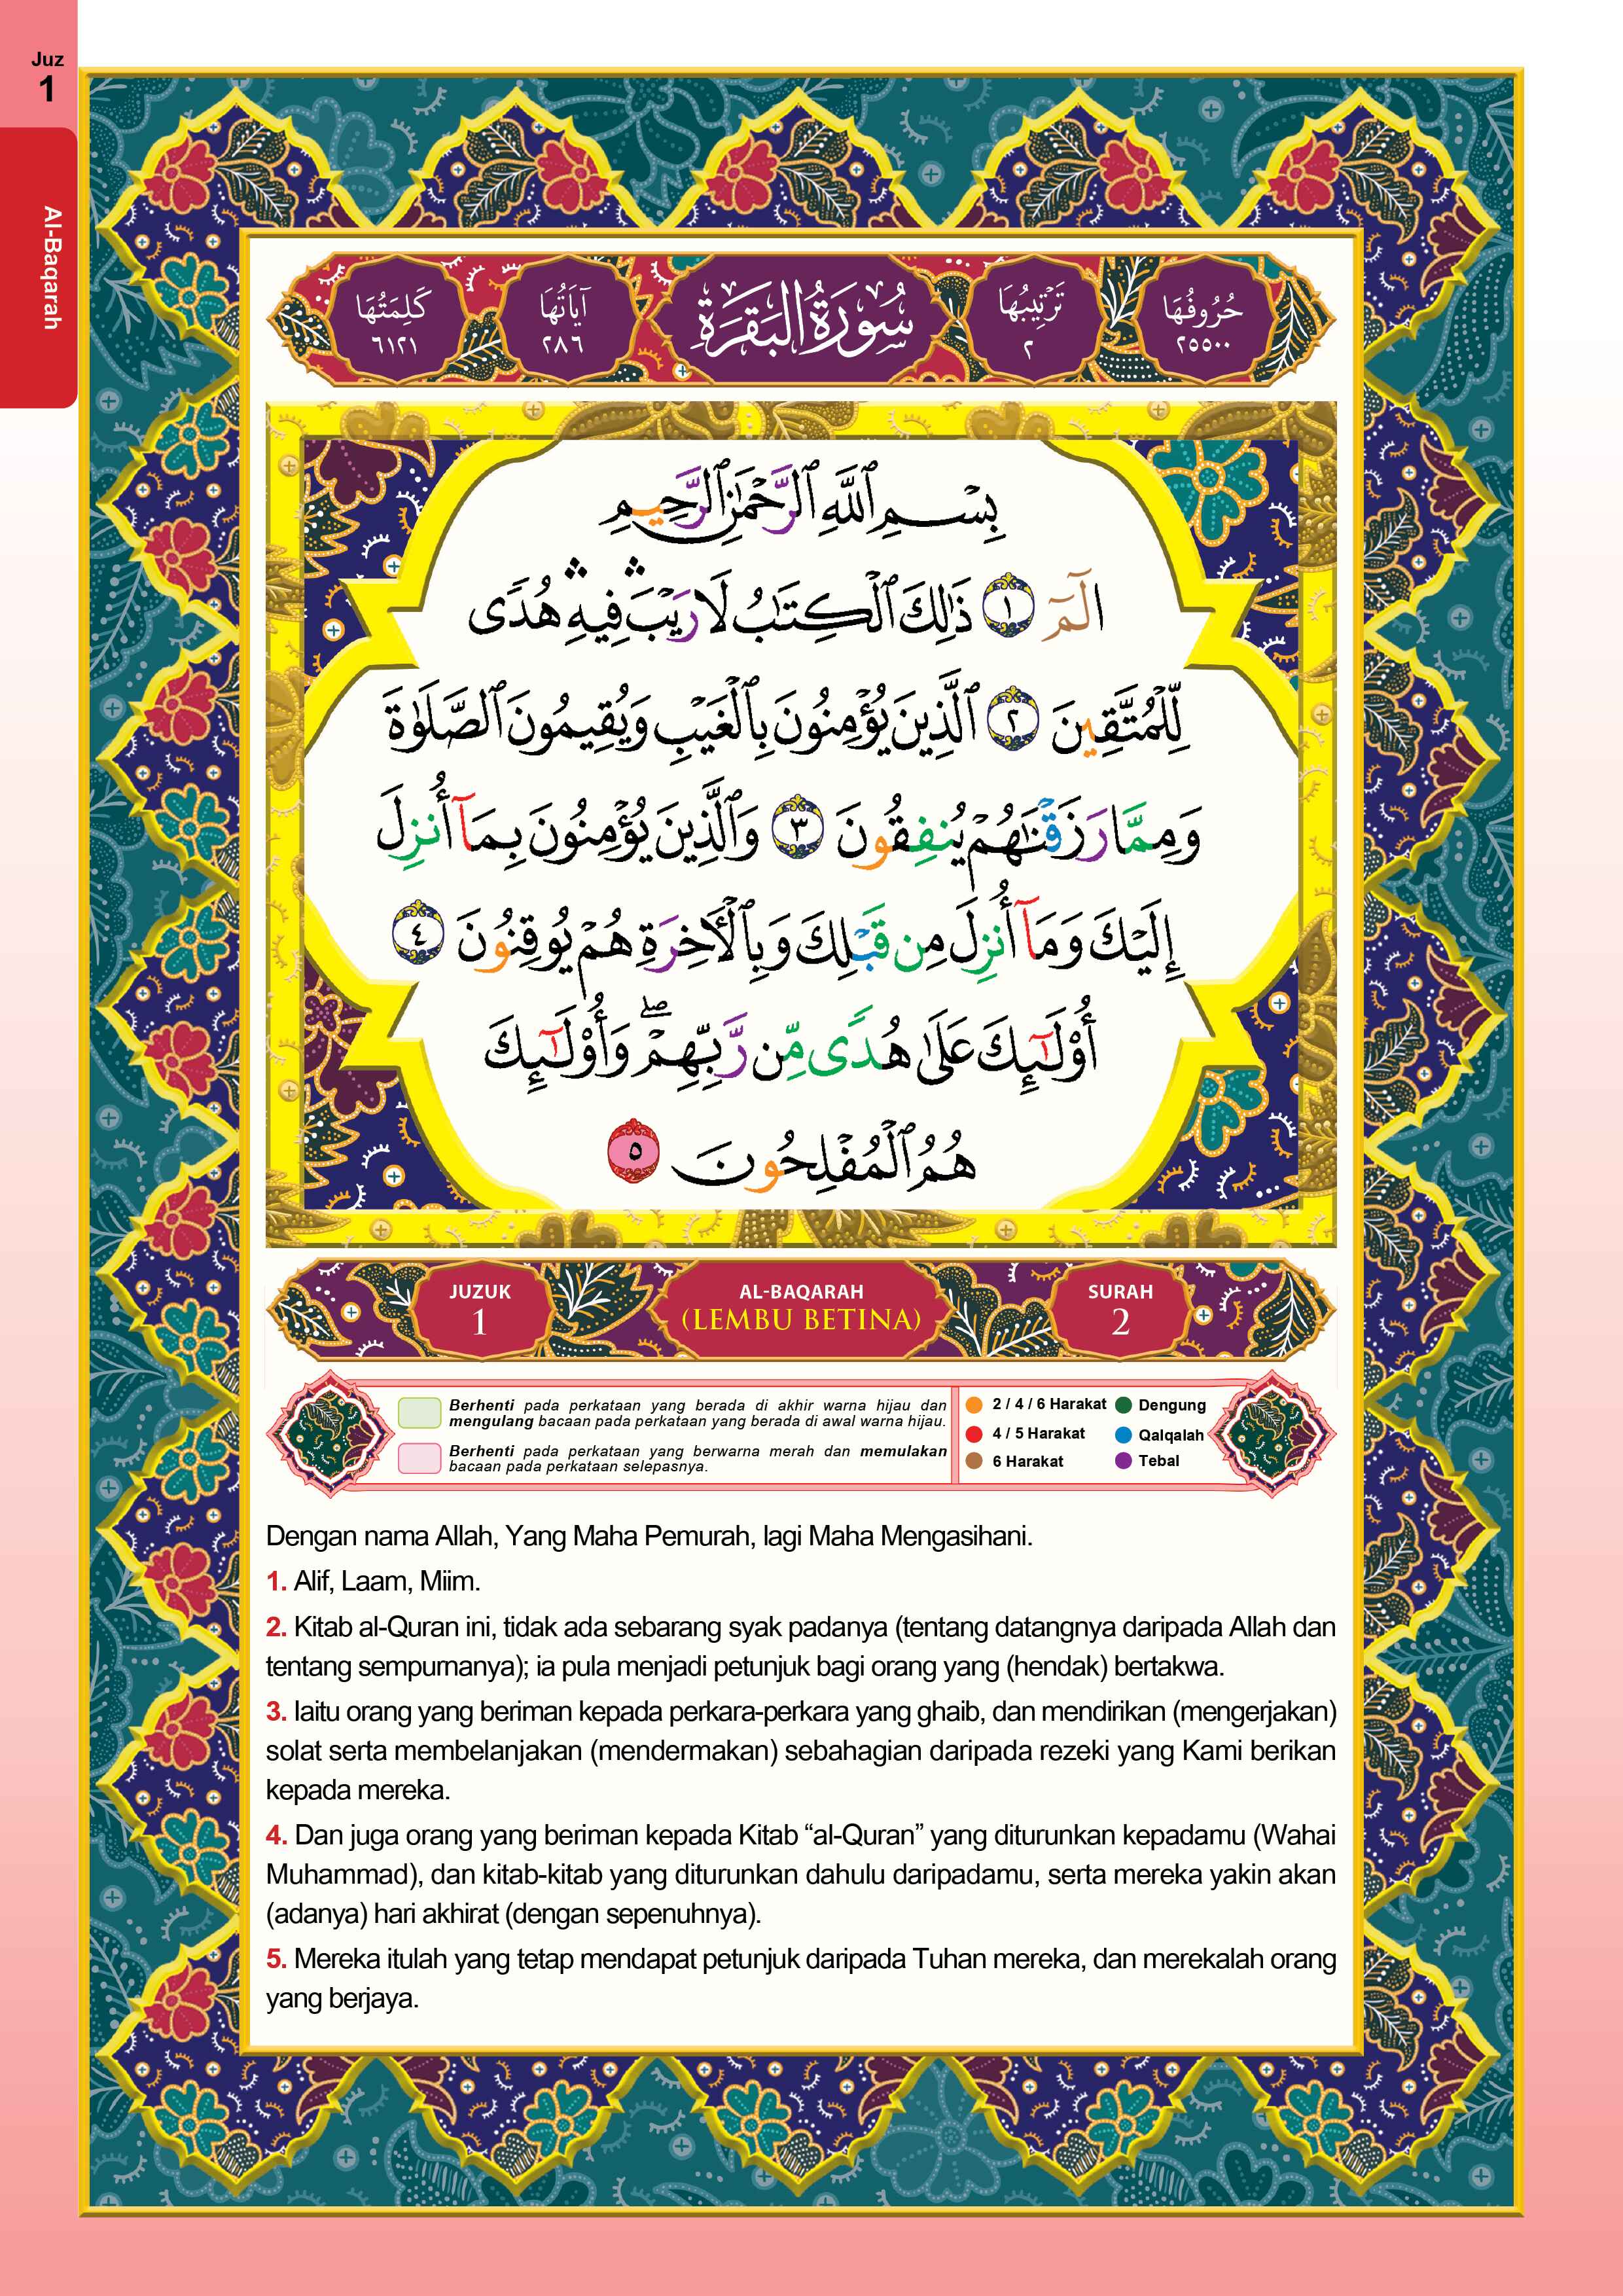 Juz
1
Al-Baqarah
حُرُوفُهَا
٢٥٥٠٠
تَرْتِيبُهَا
٢
سُورَةُ الْبَقَرَةِ
آيَاتُهَا
٢٨٦
كَلِمَتُهَا
٦١٢١
بِسْمِ ٱللَّهِ ٱلرَّحْمَٰنِ ٱلرَّحِيمِ
الٓمٓ ١ ذَٰلِكَ ٱلْكِتَٰبُ لَا رَيْبَ ۛ فِيهِ ۛ هُدًى
لِّلْمُتَّقِينَ ٢ ٱلَّذِينَ يُؤْمِنُونَ بِٱلْغَيْبِ وَيُقِيمُونَ ٱلصَّلَوٰةَ
وَمِمَّا رَزَقْنَٰهُمْ يُنفِقُونَ ٣ وَٱلَّذِينَ يُؤْمِنُونَ بِمَآ أُنزِلَ
إِلَيْكَ وَمَآ أُنزِلَ مِن قَبْلِكَ وَبِٱلْءَاخِرَةِ هُمْ يُوقِنُونَ ٤
أُو۟لَٰٓئِكَ عَلَىٰ هُدًى مِّن رَّبِّهِمْ ۖ وَأُو۟لَٰٓئِكَ
هُمُ ٱلْمُفْلِحُونَ ٥
JUZUK
1
AL-BAQARAH
(LEMBU BETINA)
SURAH
2
Berhenti pada perkataan yang berada di akhir warna hijau dan
mengulang bacaan pada perkataan yang berada di awal warna hijau.
Berhenti pada perkataan yang berwarna merah dan memulakan
bacaan pada perkataan selepasnya.
2 / 4 / 6 Harakat
Dengung
4 / 5 Harakat
Qalqalah
6 Harakat
Tebal
Dengan nama Allah, Yang Maha Pemurah, lagi Maha Mengasihani.
1. Alif, Laam, Miim.
2. Kitab al-Quran ini, tidak ada sebarang syak padanya (tentang datangnya daripada Allah dan
tentang sempurnanya); ia pula menjadi petunjuk bagi orang yang (hendak) bertakwa.
3. Iaitu orang yang beriman kepada perkara-perkara yang ghaib, dan mendirikan (mengerjakan)
solat serta membelanjakan (mendermakan) sebahagian daripada rezeki yang Kami berikan
kepada mereka.
4. Dan juga orang yang beriman kepada Kitab “al-Quran” yang diturunkan kepadamu (Wahai
Muhammad), dan kitab-kitab yang diturunkan dahulu daripadamu, serta mereka yakin akan
(adanya) hari akhirat (dengan sepenuhnya).
5. Mereka itulah yang tetap mendapat petunjuk daripada Tuhan mereka, dan merekalah orang
yang berjaya.